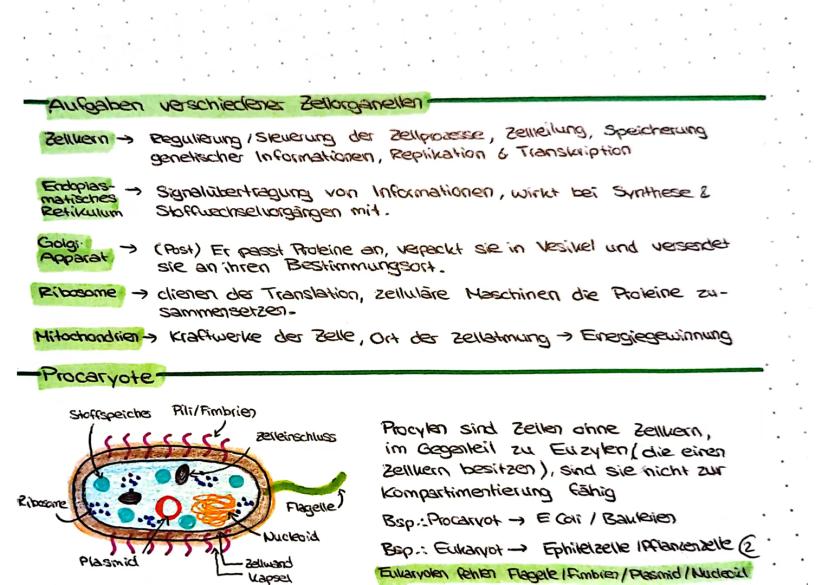 Aufgaben verschiedener Zellorganellen
Zellkern → Regulierung/Steuerung der Zellprozesse, Zellteilung, Speicherung
genetischer Informationen, Replikation & Transkription
Endoplas-
matisches
Retikulum → Signalübertragung von Informationen, wirkt bei Synthese &
Stoffwechselvorgängen mit.
Golgi-
Apparat → (Post) Er passt Proteine an, verpackt sie in Vesikel und versendet
sie an ihren Bestimmungsort.
Ribosome → dienen der Translation, zelluläre Maschinen die Proteine zu-
sammensetzen.
Mitochondrien → Kraftwerke der Zelle, Ort der Zellatmung → Energiegewinnung
Procaryote
Stoffspeicher
Pili/Fimbrien
Zelleinschluss
Ribosome
Flagelle
Nucleoid
Plasmid
Zellwand
Kapsel
Procyten sind Zellen ohne Zellkern,
im Gegenteil zu Euzyten (die einen
Zellkern besitzen), sind sie nicht zur
Kompartimentierung fähig
Bsp.: Procaryot → E Coli / Bakterien
Bsp.: Eukaryot → Ephitelzelle /Pflanzenzelle 2
Eukaryoten fehlen Flagelle/Fimbrien/Plasmid/Nucleoid